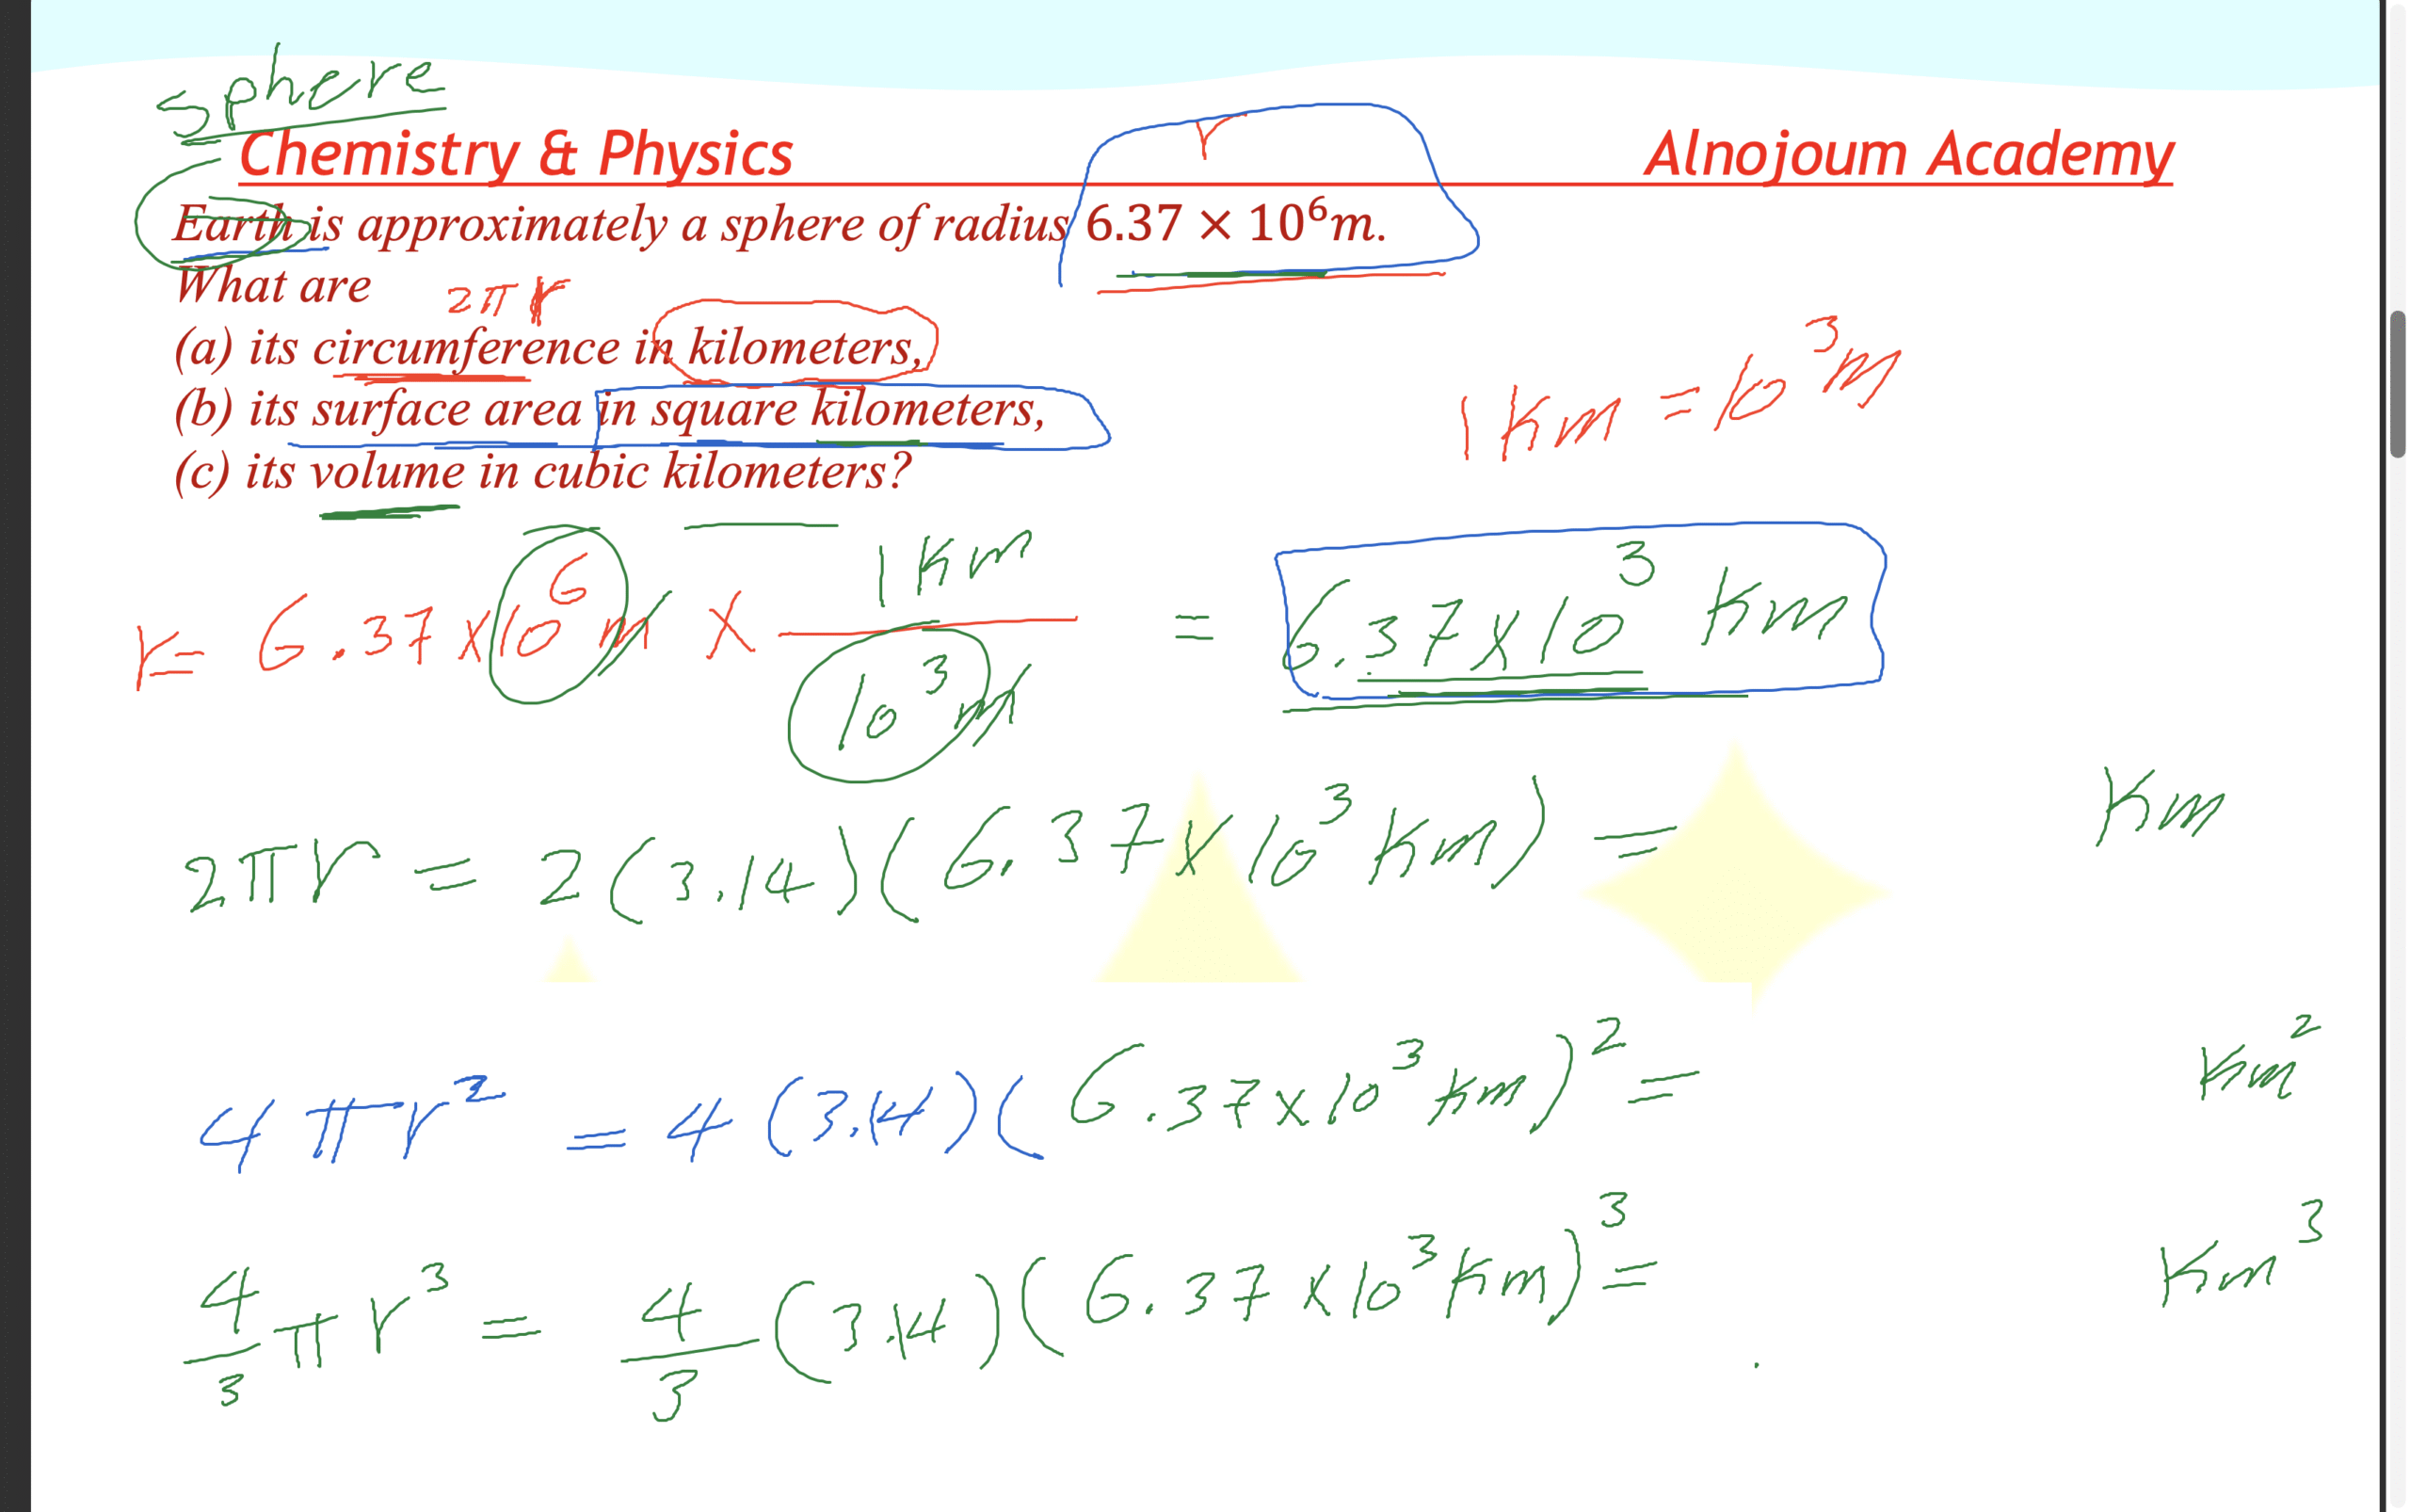 sphere
Chemistry & Physics
Alnojoum Academy
r
Earth is approximately a sphere of radius 6.37 × 10⁶m.
What are
2πr
(a) its circumference in kilometers,
(b) its surface area in square kilometers,
(c) its volume in cubic kilometers?
1km = 10³m
r = 6.37×10⁶m × 1km / 10³m = 6.37×10³ km
2πr = 2(3.14)(6.37×10³km) = km
4πr² = 4(3.14)(6.37×10³km)² = km²
4/3 πr³ = 4/3 (3.14)(6.37×10³km)³ = km³